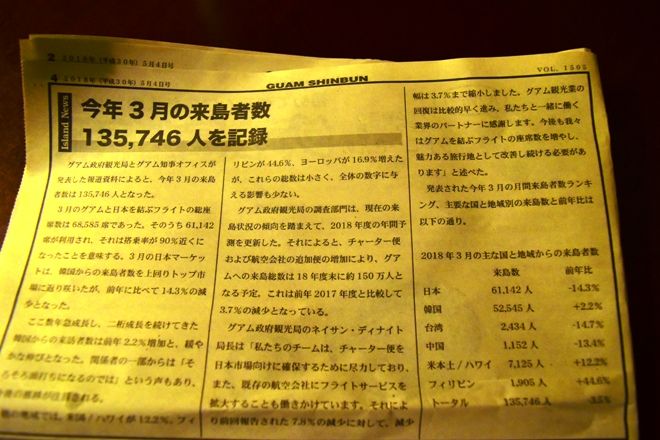 2 2018年（平成30年）5月4日号
VOL. 1505
4 2018年（平成30年）5月4日号
GUAM SHINBUN
Island News
今年３月の来島者数
135,746 人を記録
グアム政府観光局とグアム知事オフィスが
発表した報道資料によると、今年3月の来島
者数は135,746人となった。
３月のグアムと日本を結ぶフライトの総座
席数は68,585席であった。そのうち61,142
席が利用され、それは搭乗率が90％近くにな
ったことを意味する。３月の日本マーケッ
トは、韓国からの来島者数を上回りトップ市
場に返り咲いたが、前年に比べて14.3％の減
少となった。
ここ数年急成長し、二桁成長を続けてきた
韓国からの来訪者数は前年2.2％増加と、緩や
かな伸びとなった。関係者の一部からは「そ
ろそろ頭打ちになるのでは」という声もあり、
米国／ハワイが12.2％、フィ
リピンが44.6％、ヨーロッパが16.9％増えた
が、これらの総数は小さく、全体の数字に与
える影響も少ない。
グアム政府観光局の調査部門は、現在の来
島状況の傾向を踏まえて、2018年度の年間予
測を更新した。それによると、チャーター便
および航空会社の追加便の増加により、グア
ムへの来島総数は18年度末に約150万人と
なる予定。これは前年2017年度と比較して
3.7％の減少となっている。
グアム政府観光局のネイサン・ディナイト
局長は「私たちのチームは、チャーター便を
日本市場向けに確保するために尽力しており、
また、既存の航空会社にフライトサービスを
拡大することも働きかけています。それによ
り前回報告された7.8％の減少に対して、減少
幅は3.7％まで縮小しました。グアム観光業の
回復は比較的早く進み、私たちと一緒に働く
業界のパートナーに感謝します。今後も我々
はグアムを結ぶフライトの座席数を増やし、
魅力ある旅行地として改善し続ける必要があ
ります」と述べた。
発表された今年３月の月間来島者数ランキ
ング、主要な国と地域別の来島数と前年比は
以下の通り。
2018年３月の主な国と地域からの来島者数
来島数 前年比
日本 61,142 人 -14.3%
韓国 52,545 人 +2.2%
台湾 2,434 人 -14.7%
中国 1,152 人 -13.4%
米本土／ハワイ 7,125 人 +12.2%
フィリピン 1,905 人 +44.6%
トータル 135,746 人 -3.5%